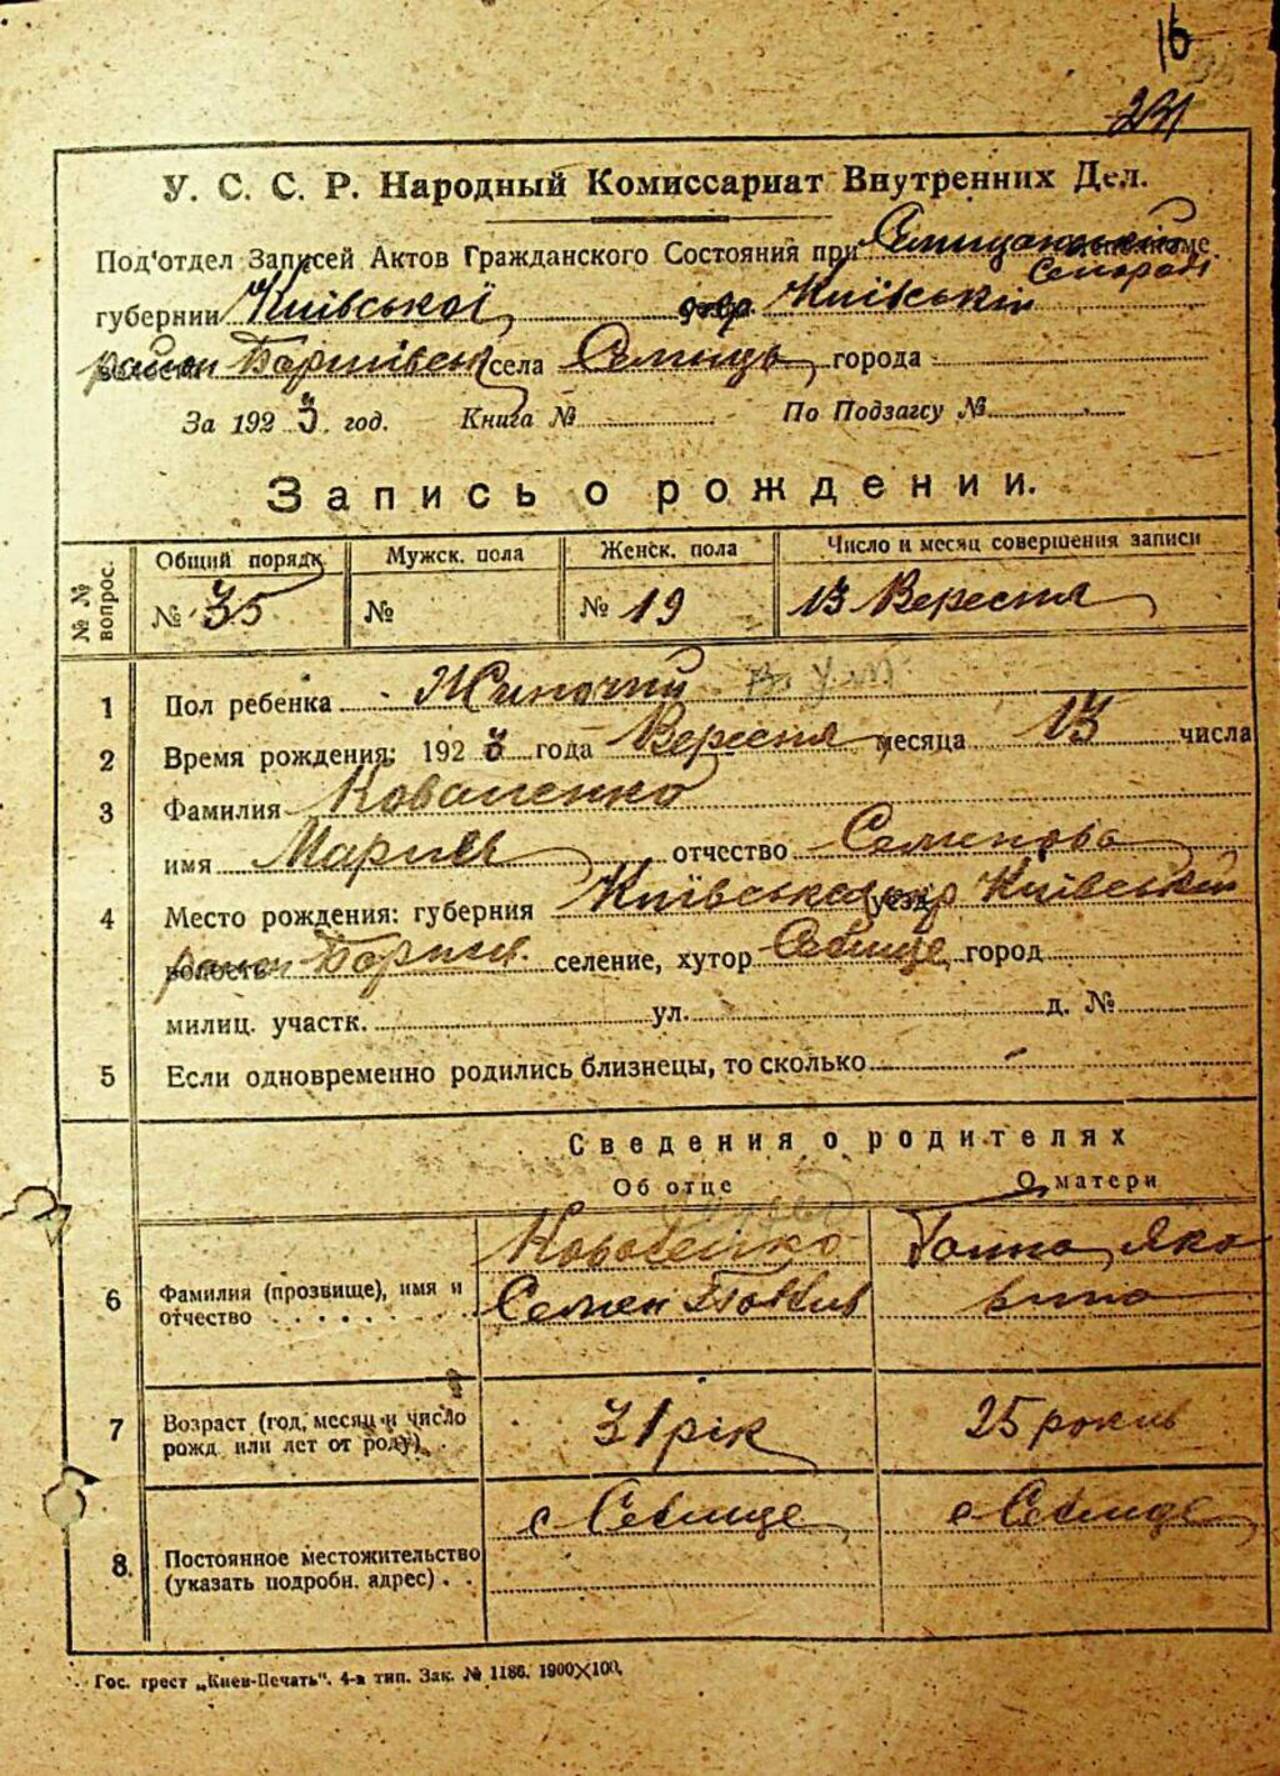 16
231
У. С. С. Р. Народный Комиссариат Внутренних Дел.
Под'отдел Записей Актов Гражданского Состояния при
Сельраді
губернии Київської, окр Київській
район села города
За 1923 год. Книга № По Подзагсу №
Запись о рождении.
№ № вопрос. Общий порядк. Мужск. пола Женск. пола Число и месяц совершения записи
№ 35 № № 19 13 Вересня
1 Пол ребенка Жиночий
2 Время рождения: 1923 года Вересня месяца 13 числа
3 Фамилия Коваленко
имя Мария отчество Семенова
4 Место рождения: губерния Київська уезд окр Київській
волость район селение, хутор город
милиц. участк. ул. д. №
5 Если одновременно родились близнецы, то сколько -
Сведения о родителях
Об отце О матери
6 Фамилия (прозвище), имя и отчество
Семен
Ганна Яковина
7 Возраст (год, месяц и число рожд. или лет от роду). 31 рік 25 рокив
8. Постоянное местожительство (указать подробн. адрес). .
Гос. трест „Киев-Печать". 4-я тип. Зак. № 1186. 1900×100.